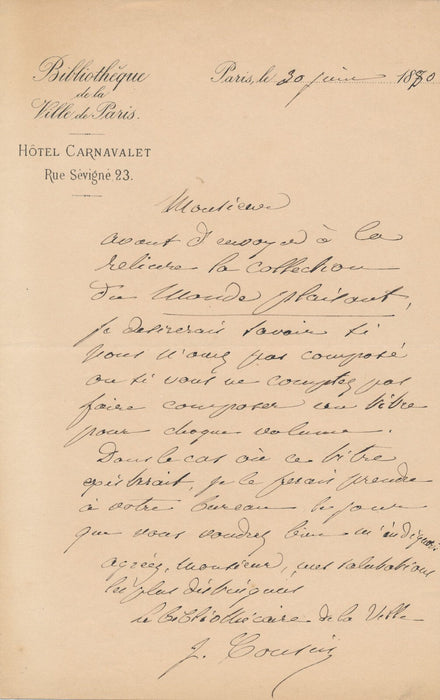 Bibliothèque
de la
Ville de Paris.
HÔTEL CARNAVALET
Rue Sévigné 23.
Paris, le 30 juin 1880
Monsieur
avant d'envoyer à la
reliure la collection
du Monde plaisant,
je désirerais savoir si
vous n'avez pas composé
ou si vous ne comptez pas
faire composer un titre
pour chaque volume.
Dans le cas où ce titre
existerait, je le ferais prendre
à votre bureau le jour
que vous voudrez bien m'indiquer
agréez, monsieur, mes salutations
les plus distinguées
le bibliothécaire de la Ville
J. Cousin